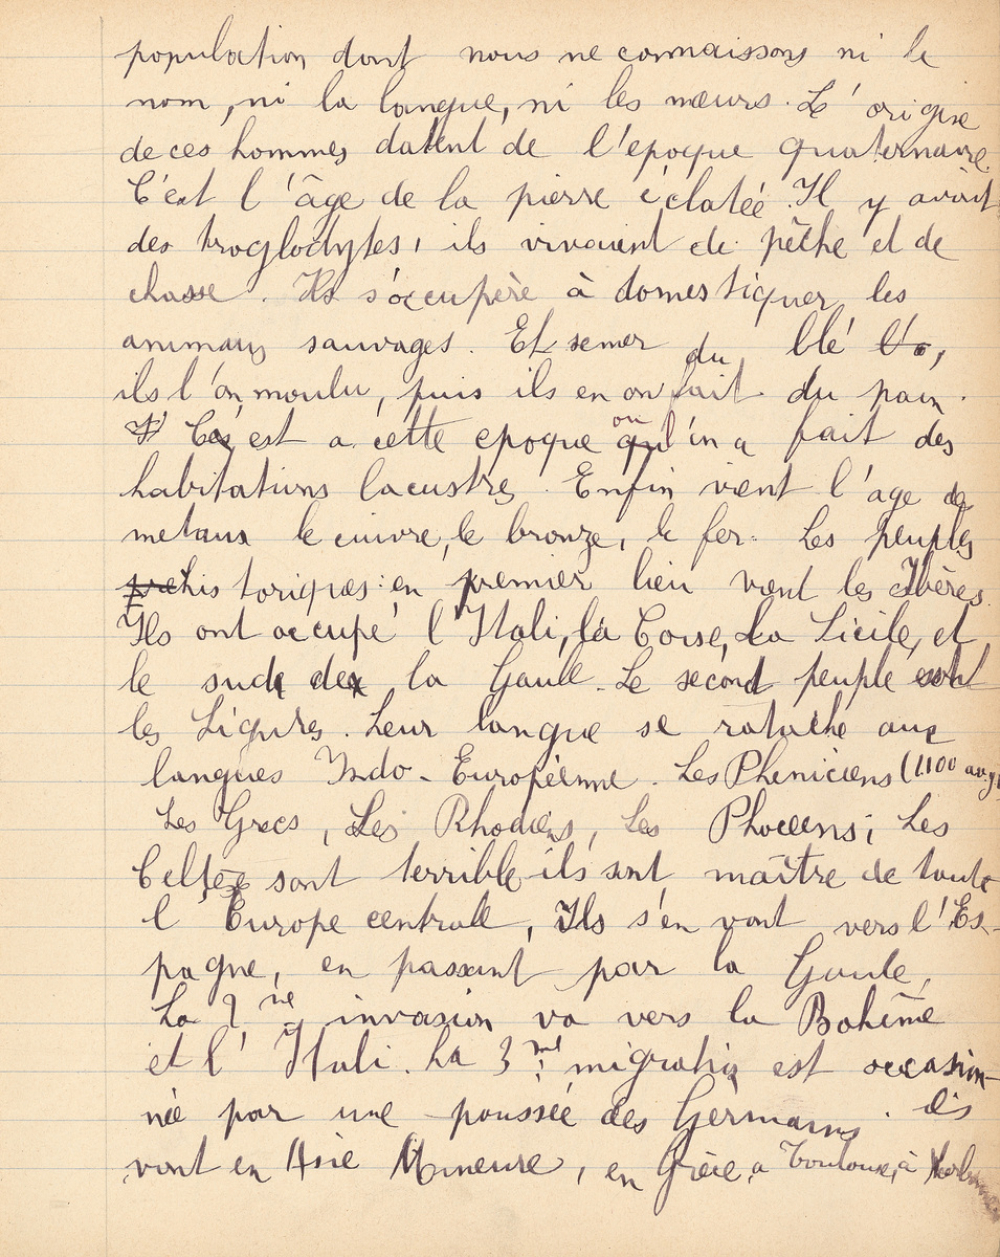 population dont nous ne connaissons ni le
nom, ni la langue, ni les mœurs. L'origine
de ces hommes datent de l'epoque quaternaire.
C'est l'âge de la pierre éclatée. Il y avait
des troglodytes, ils vivaient de pêche et de
chasse. Ils s'occupère à domestiquer les
animaux sauvages. Et semer du blé
ils l'on moulu, puis ils en on fait du pain.
est a cette epoque ou l'in a fait des
habitations lacustres. Enfin vient l'age de
metaux le cuivre, le bronze, le fer. Les peuples
prehistoriques: en premier lieu vient les Ibères.
Ils ont occupé l'Itali, la Corse, La Sicile, et
le sud de la Gaule. Le second peuple
les Ligures. Leur langue se ratache aux
langues Indo-Européenne. Les Pheniciens (1100 av.
Les Grecs, Les Rhodiens, Les Phoceens; Les
Celtes sont terrible ils sont maître de toute
l'Europe centrale, Ils s'en vont vers l'Es-
pagne, en passant par la Gaule,
La 2me invasion va vers la Bohême
et l'Itali. La 3me migration est occasion-
née par une poussée des Germains. Ils
vont en Asie Mineure, en Grèce, a Toulouse, à